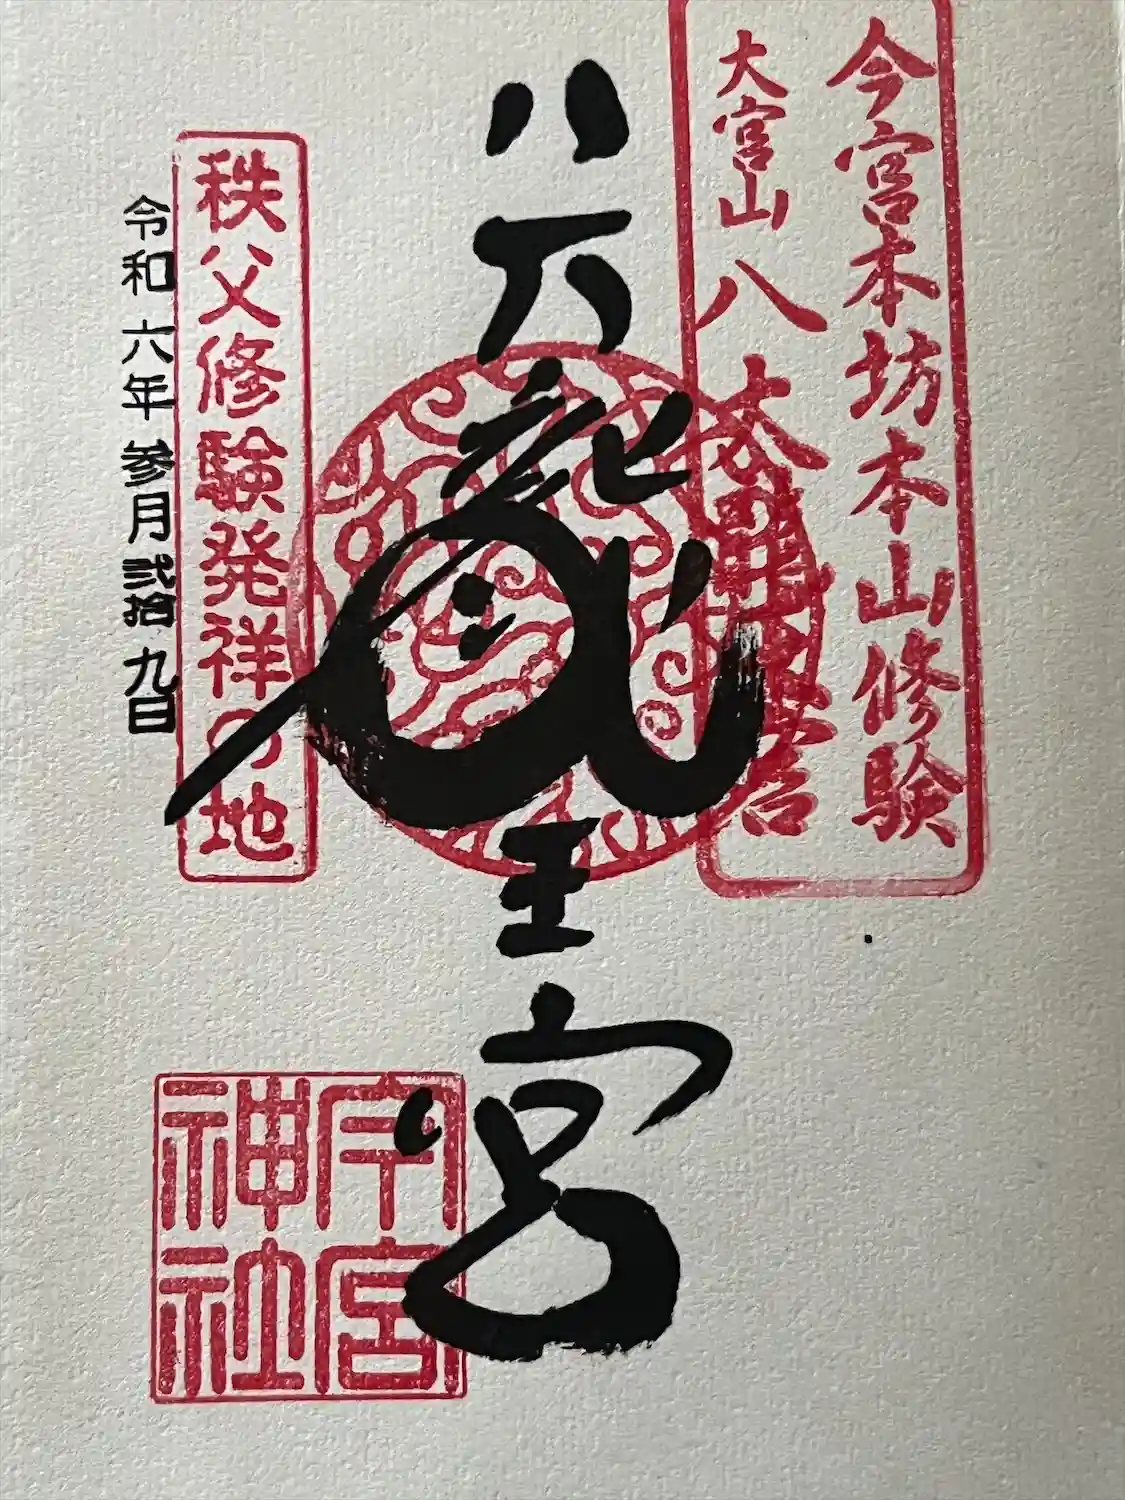 今宮本坊本山修験
大宮山 八大
八大龍王宮
秩父修験発祥の地
令和六年参月弐拾九日
今宮神社